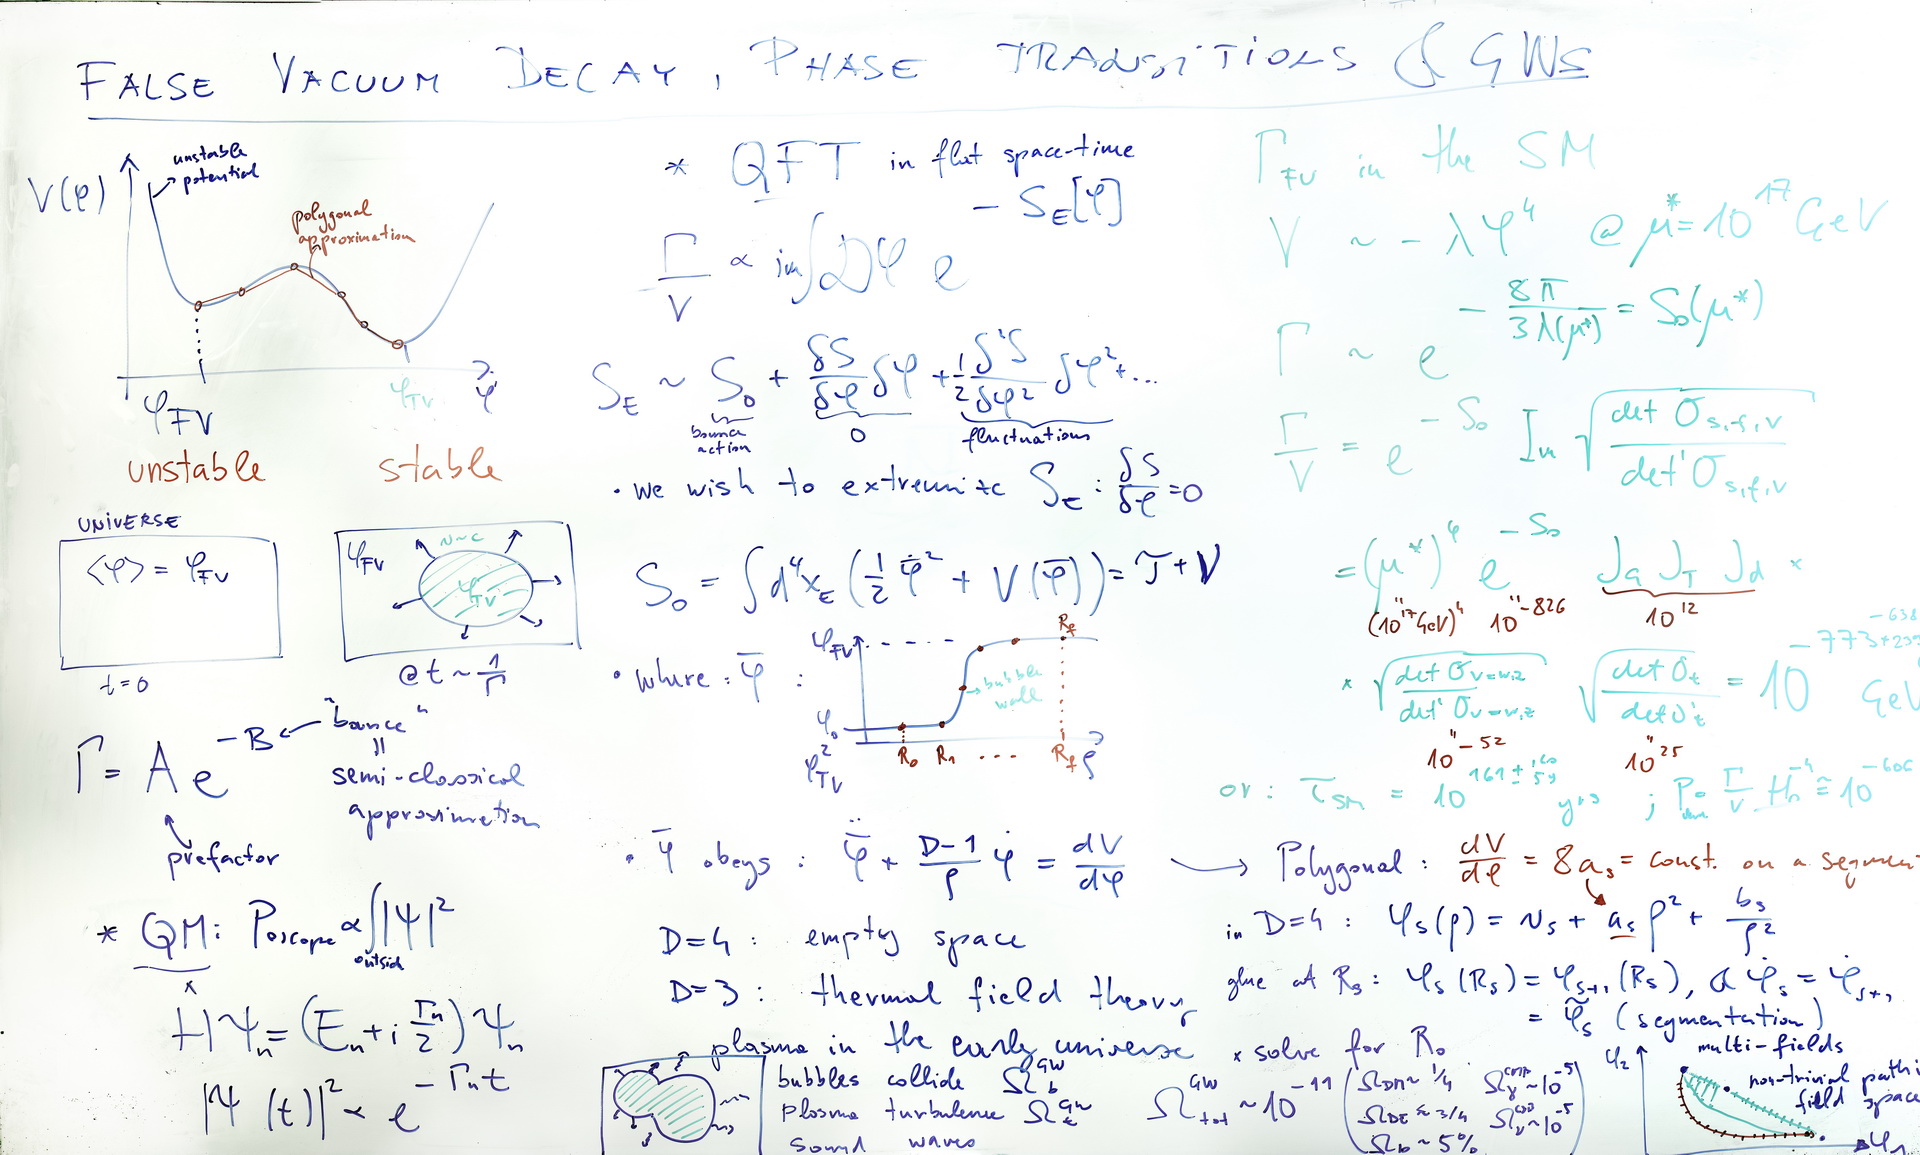 FALSE VACUUM DECAY, PHASE TRANSITIONS & GWs
unstable
potential
V(φ)
polygonal
approximation
φ_FV
φ_TV
φ
unstable
stable
UNIVERSE
⟨φ⟩ = φ_FV
t=0
φ_FV
v~c
φ_TV
@ t ~ 1/Γ
Γ = A e^{-B} ← "bounce"
=
semi-classical
approximation
prefactor
* QM: P_escape ∝ ∫_outside |Ψ|²
HΨ_n = (E_n + i Γ_n/2) Ψ_n
|Ψ(t)|² ∝ e^{-Γ_n t}
* QFT in flat space-time
Γ/V ∝ im ∫ Dφ e^{-S_E[φ]}
S_E ~ S_0 + δS/δφ δφ + 1/2 δ²S/δφ² δφ² + ...
bounce
action
0
fluctuations
• we wish to extremize S_E : δS/δφ = 0
S_0 = ∫ d⁴x_E (1/2 φ̇̄² + V(φ̄)) = T + V
• where : φ̄ :
φ_FV
R_f
bubble
wall
φ_0
φ_TV
R_0 R_1 ... R_f ρ
• φ̄ obeys : φ̄̈ + (D-1)/ρ φ̇ = dV/dφ →
D=4 : empty space
D=3 : thermal field theory
plasma in the early universe
bubbles collide Ω_b^GW
plasma turbulence Ω_t^GW
sound waves
Ω_tot^GW ~ 10^{-11}
(Ω_DM ~ 1/4 Ω_γ^com ~ 10^{-5}
Ω_DE ≈ 3/4 Ω_ν ~ 10^{-5}
Ω_b ~ 5%)
Γ_FV in the SM
V ~ - λφ⁴ @ μ* = 10^17 GeV
Γ ~ e^{- 8π/3λ(μ*)} = S_0(μ*)
Γ/V = e^{-S_0} Im √(det O_{s,f,V} / det' O_{s,f,V})
= (μ*)⁴ e^{-S_0} J_G J_T J_d ×
(10^17 GeV)⁴ 10^{-826} 10^12
× √(det O_{V=W,Z} / det' O_{V=W,Z}) √(det O_t / det O'_t) = 10
GeV
10^{-52} 10^25
or : τ_SM = 10 yrs ; Γ/V H_0^{-4} ≅ 10^{-606}
Polygonal : dV/dφ = 8a_s = const. on a segment
in D=4 : φ_s(ρ) = v_s + a_s ρ² + b_s/ρ²
glue at R_s : φ_s(R_s) = φ_{s+1}(R_s), & φ̇_s = φ̇_{s+1}
= φ̃_s (segmentation)
* solve for R_0
multi-fields
φ_2
non-trivial path in
field space
φ_1